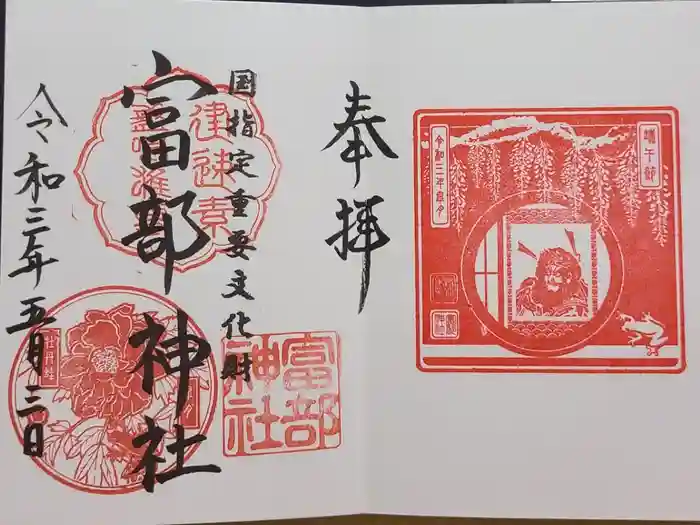 端午節
令和三年皐月
奉拝
国指定重要文化財
富部神社
富部神社
建速素
牡丹
令和三年五月三日